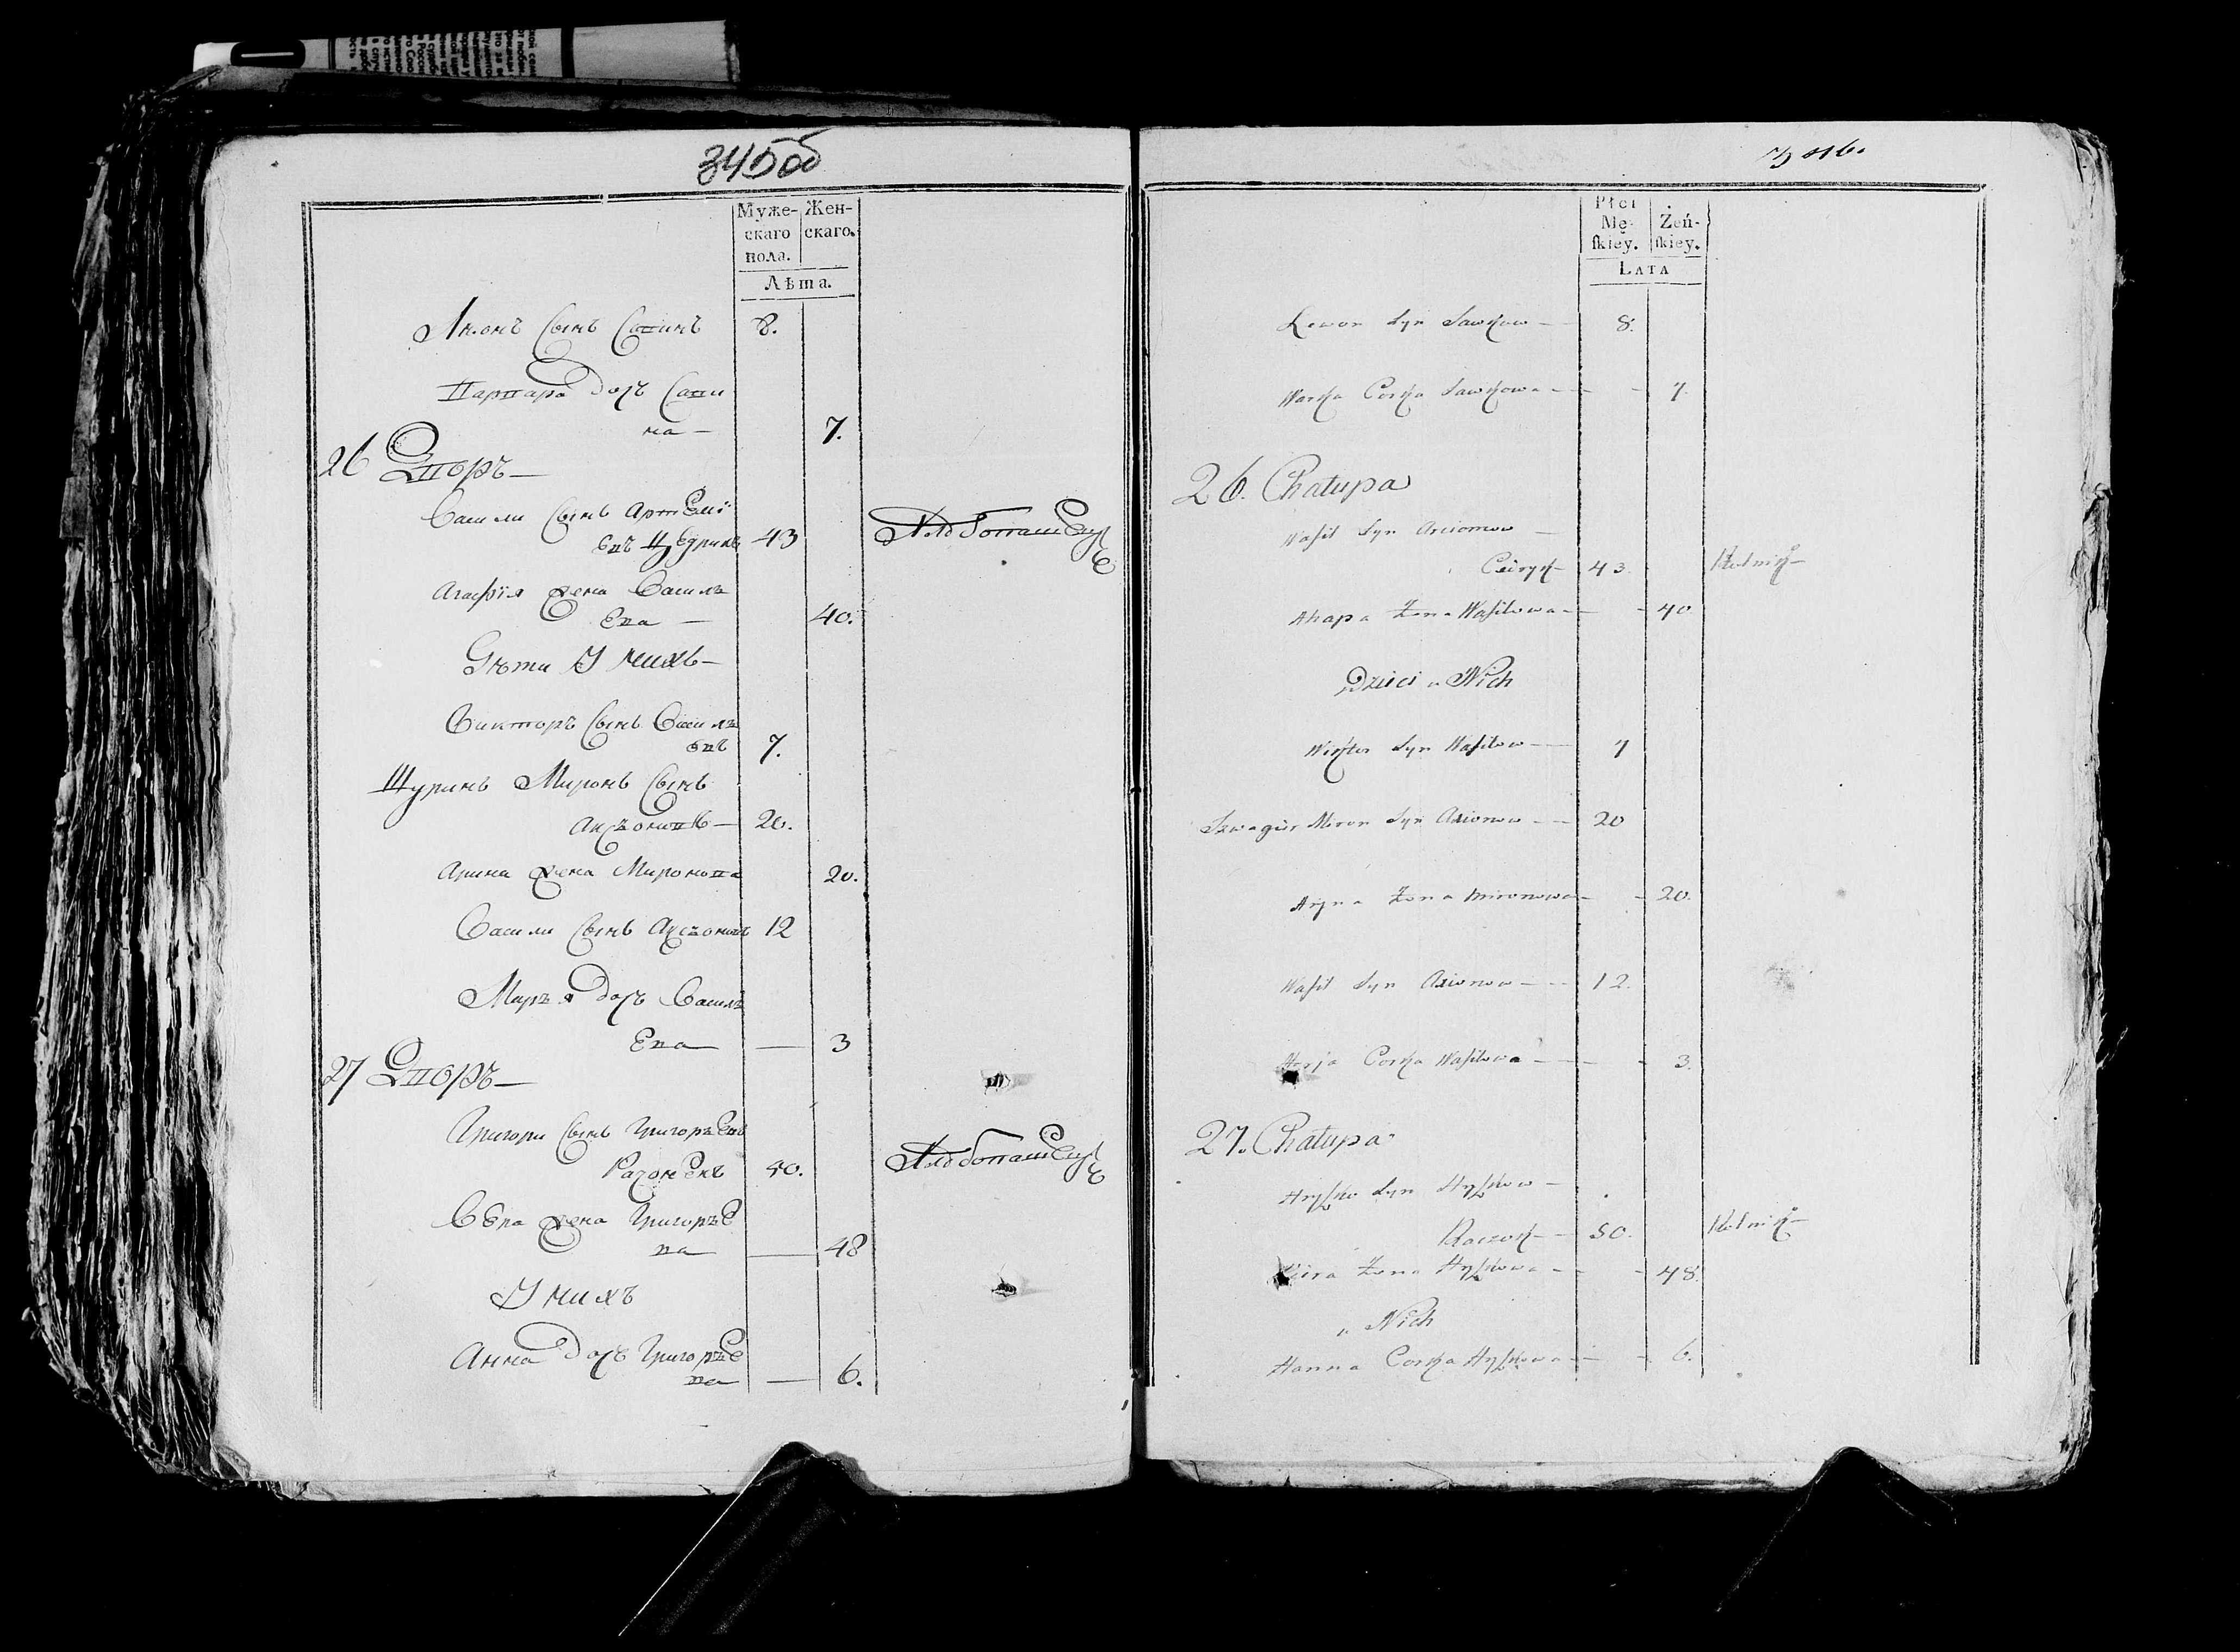 345об
Муже-
скаго
пола.
Жен-
скаго.
Лѣта.
Сынъ Савинъ 8.
Варвара дочь Сави
на — 7.
26 Дворъ —
Васили Сынъ Артемі
евъ 43 Хлебопашец
Агафія жена Василь
ева — 40.
Дѣти У нихъ —
Викторъ Сынъ Василь
евъ 7.
Шуринъ Миронъ Сынъ
Аксіоновъ — 20.
Арина жена Миронова 20.
Васили Сынъ Аксіоновъ 12
Марья дочь Василь
ева — 3
27 Дворъ —
Григори Сынъ Григорьевъ
40. Хлебопашец
Вера жена Григорье
ва — 48
У нихъ
Анна дочь Григорье
ва — 6.
Płci
Mę-
ſkiey.
Żeń-
ſkiey.
Lata
Lewon Syn Sawkow — 8.
Warka Corka Sawkowa — 7.
26. Chatupa
Waſil Syn Arciomow —
43. Rolnik —
Ahapa Żona Waſilowa — 40
Dzieci u Nich
Wikter Syn Waſilow — 7
Szwagier Miron Syn Axionow — 20
Aryna Żona Mironowa — 20.
Waſil Syn Axionow — 12.
Marja Corka Waſilowa — 3.
27. Chatupa
Hryſko Syn Hryſkow —
Raczok — 50. Rolnik —
Wiera Żona Hryſkowa — 48.
u Nich
Hanna Corka Hryſkowa — 6.